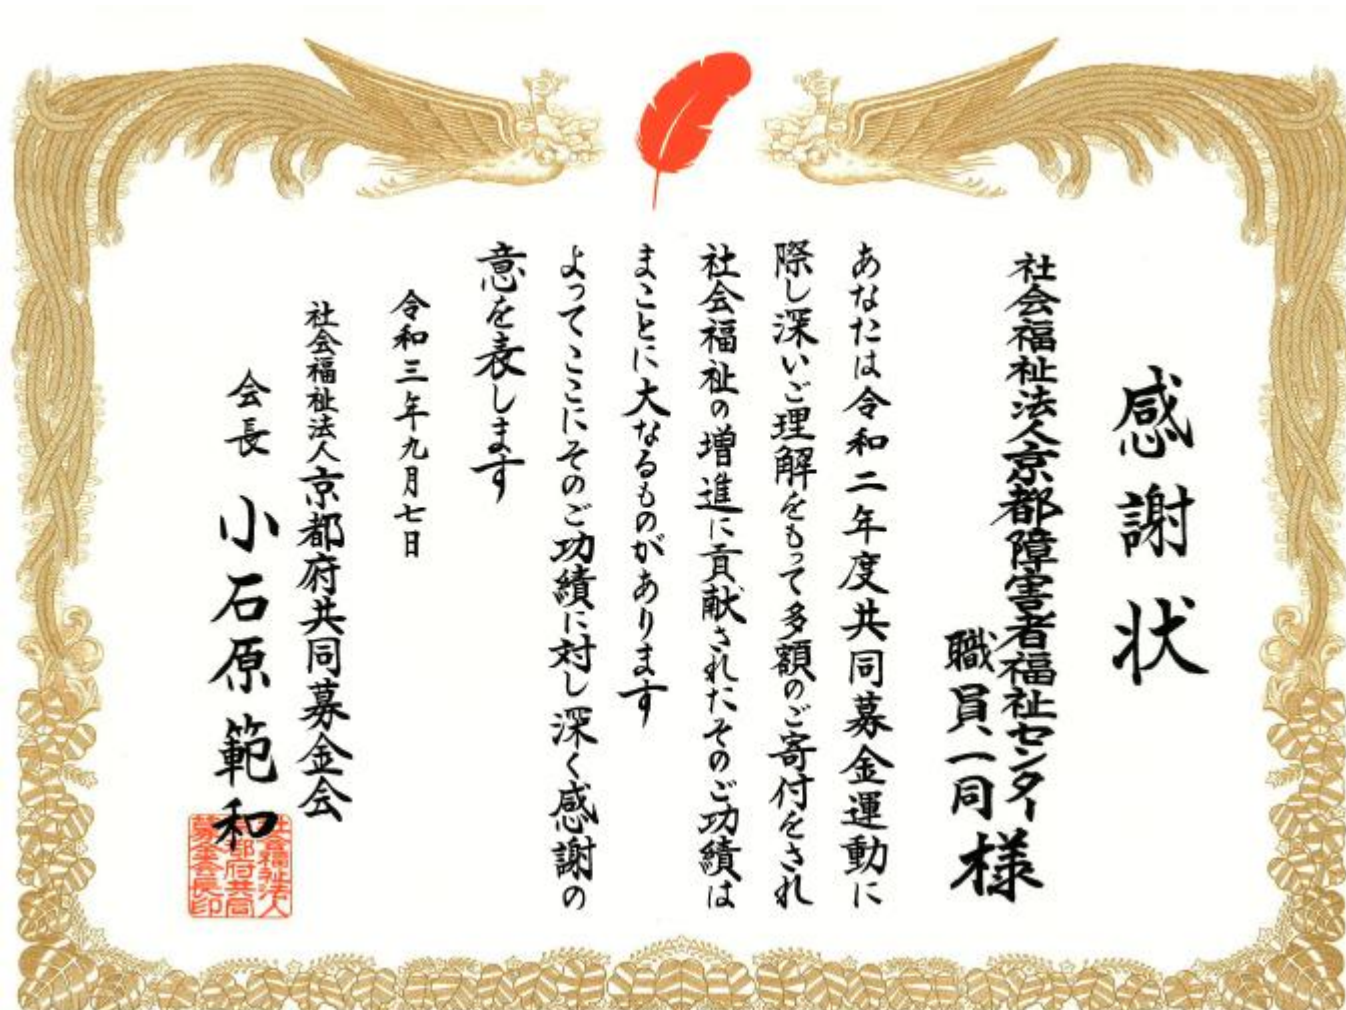 感謝状
社会福祉法人京都障害者福祉センター
職員一同様
あなたは令和二年度共同募金運動に
際し深いご理解をもって多額のご寄付をされ
社会福祉の増進に貢献されたそのご功績は
まことに大なるものがあります
よってここにそのご功績に対し深く感謝の
意を表します
令和三年九月七日
社会福祉法人京都府共同募金会
会長 小石原範和
社会福祉法人
京都府共同
募金会長印